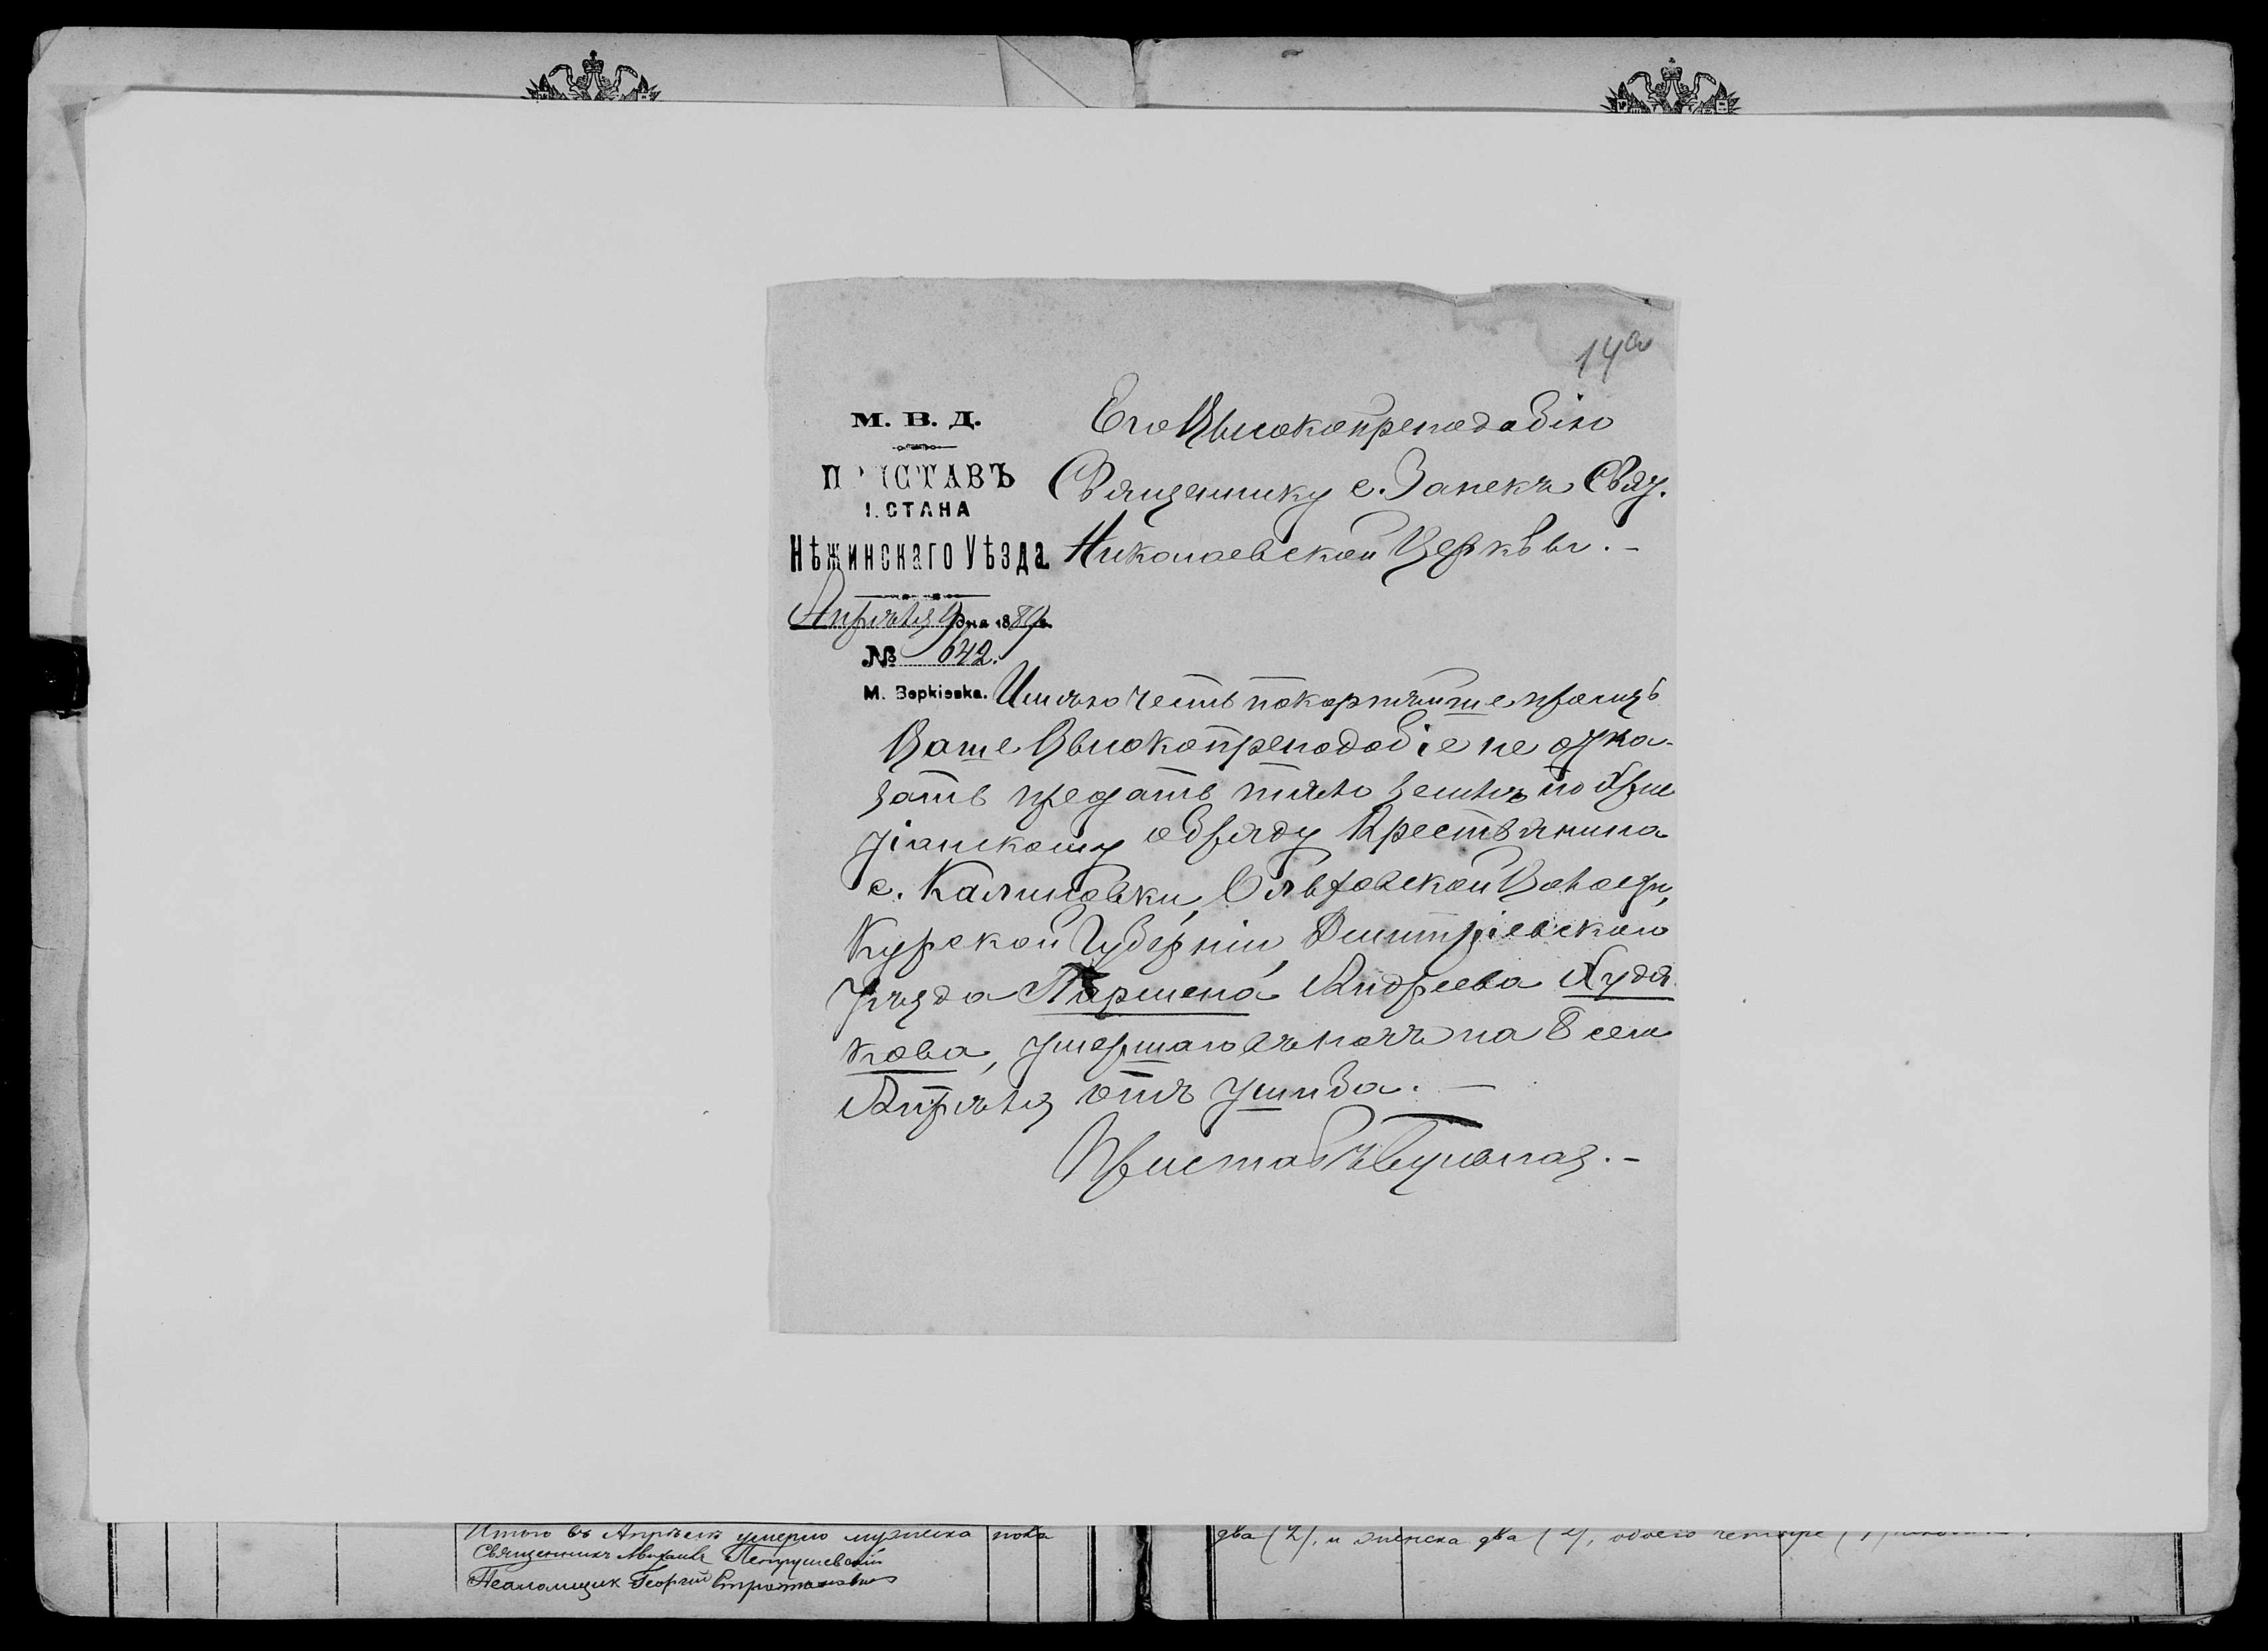 14а
М. В. Д.
ПРИСТАВЪ
1. СТАНА
Нѣжинскаго Уѣзда.
Апрѣля 9 дня 1889 г.
№ 642.
М. Веркіевка.
Его Высокопреподобію
Священнику с. Заньк Свят.
Николаевской Церквы. –
Имѣю честь покорнѣйше просить
Ваше Высокопреподобіе не отка-
зать предать тѣло землѣ по Хрис
тіанскому обряду Крестьянина
с. Калиновки, Волости,
Курской Губерніи, Дмитріевскаго
Уѣзда Пармена Андреева Худя
кова, умершаго въ ночь на 8 сего
Апрѣля отъ ушиба. —
Приставъ
Итого въ Апрѣлѣ умерло мужеска пола два (2), и женска два (2), обоего четыре (4)
Священникъ Михаилъ Петрушевскій
Псаломщик Георгій